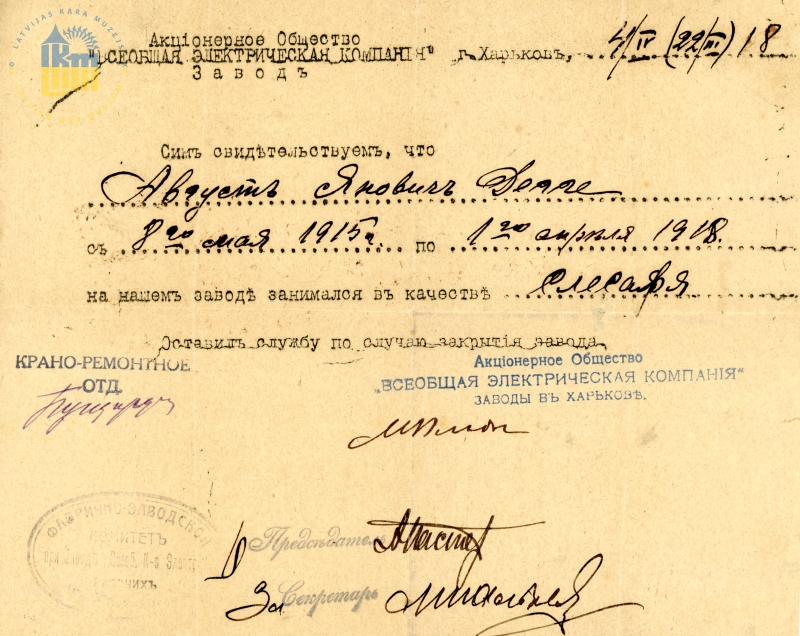 LATVIJAS KARA MUZEJS
Акцiонерное Общество
"ВСЕОБЩАЯ ЭЛЕКТРИЧЕСКАЯ КОМПАНIЯ" г. Харьковъ, 4/IV (22/III) 18
Заводъ
Симъ свидѣтельствуемъ, что
Августъ Яновичъ Делле
съ 8го мая 1915г. по 1го апрѣля 1918.
на нашемъ заводѣ занимался въ качествѣ слесаря
Оставилъ службу по случаю закрытiя завода.
КРАНО-РЕМОНТНОЕ
ОТД.
Акцiонерное Общество
„ВСЕОБЩАЯ ЭЛЕКТРИЧЕСКАЯ КОМПАНIЯ"
ЗАВОДЫ ВЪ ХАРЬКОВѢ.
ФАБРИЧНО-ЗАВОДСКОЙ
КОМИТЕТЪ
при Заводѣ Всеоб. К-о Электр.
Рабочихъ
Предсѣдатель
За Секретарь